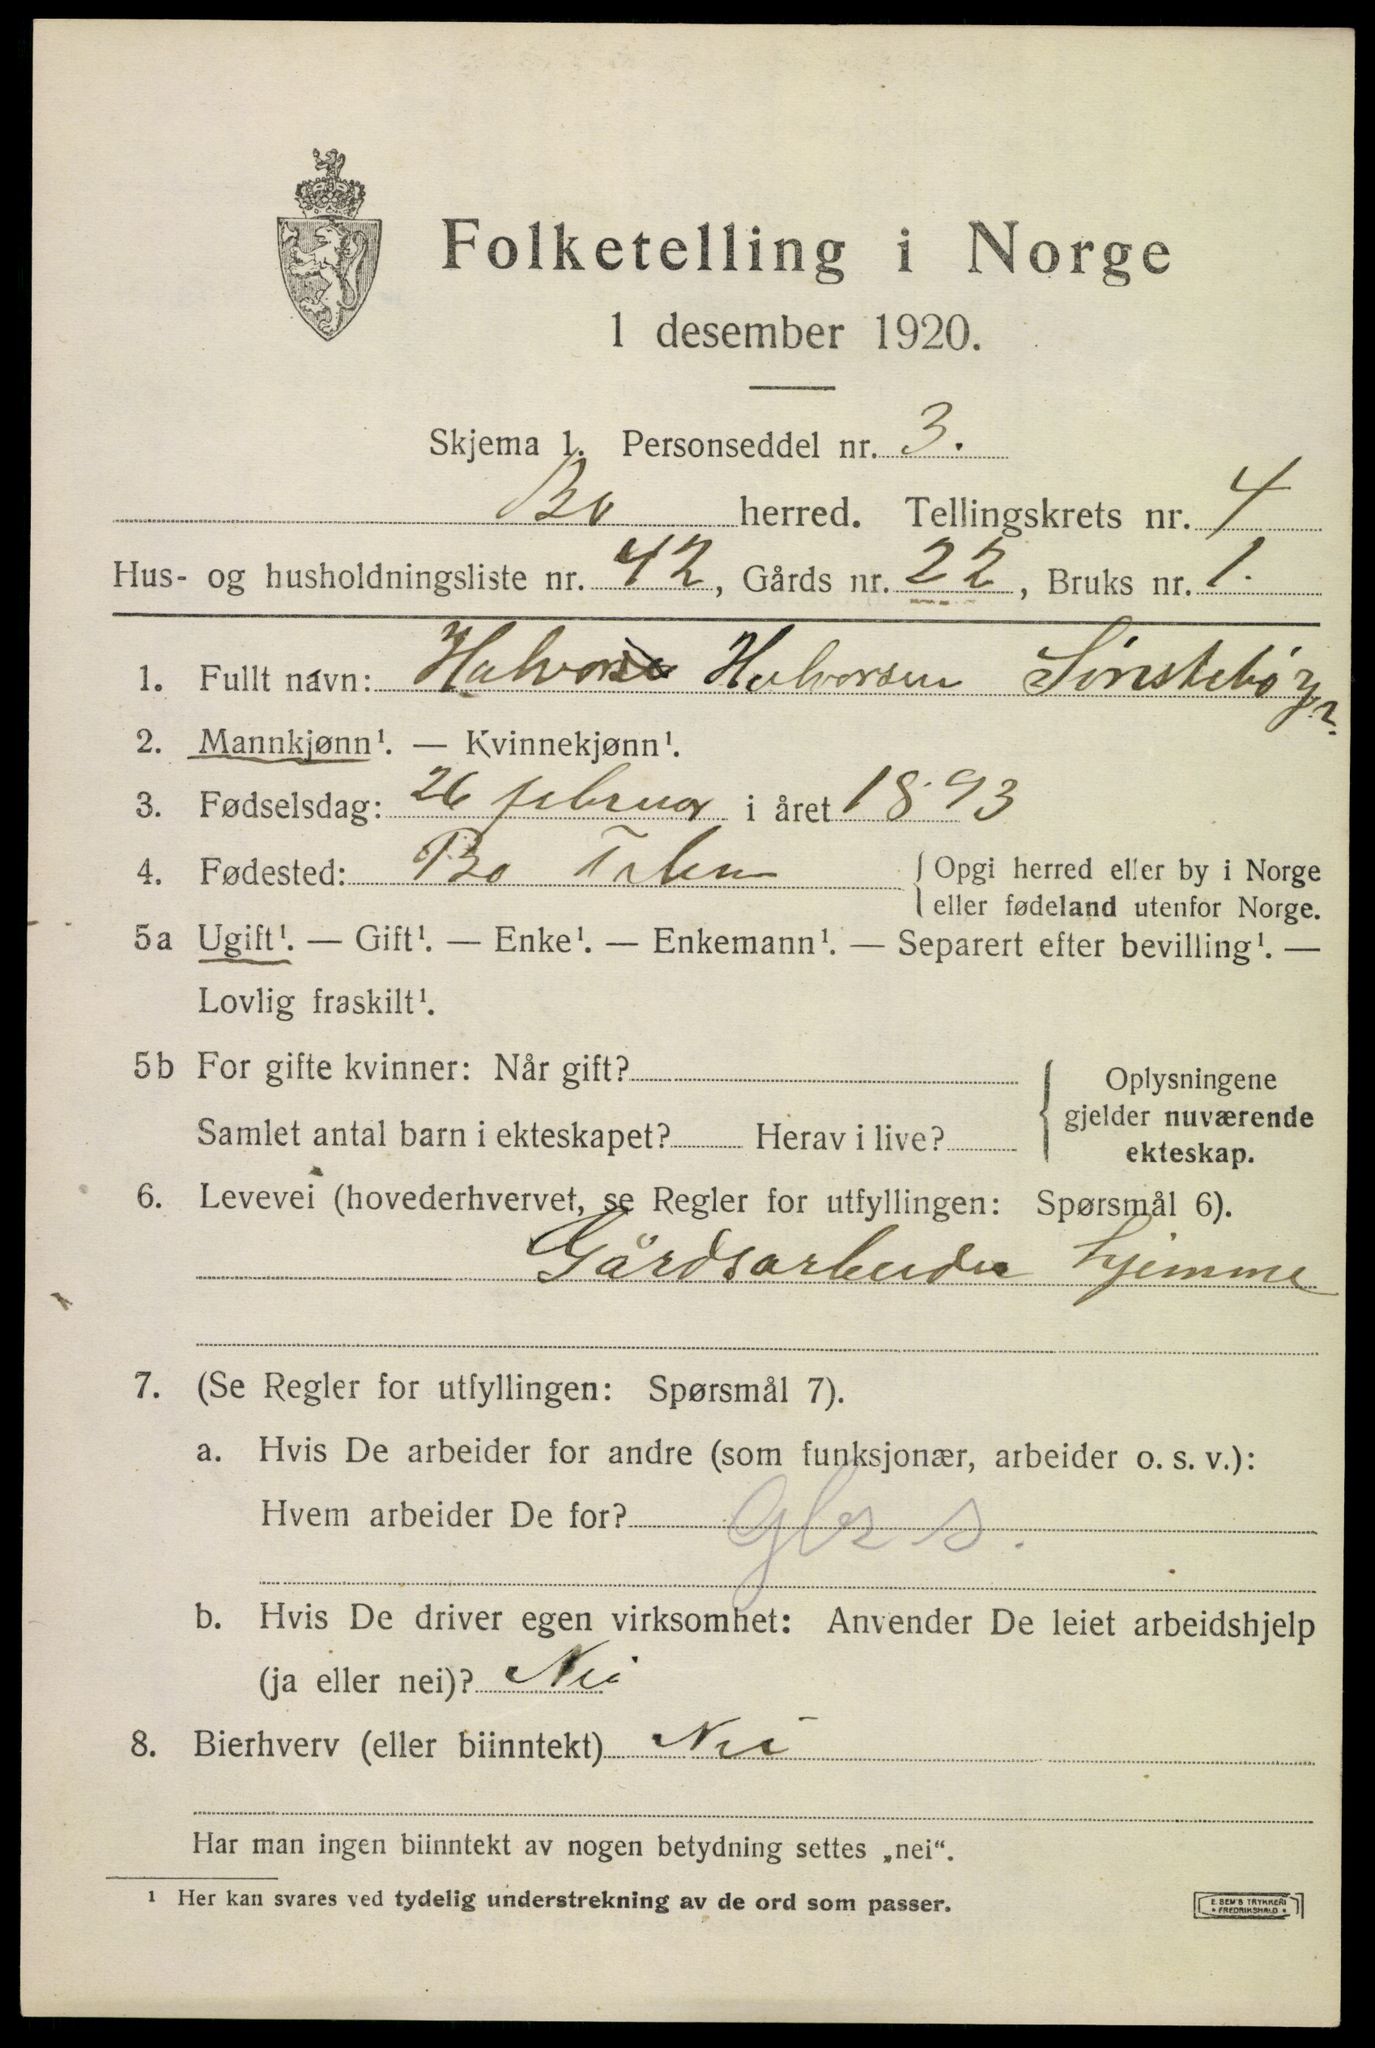 Folketelling i Norge
1 desember 1920.
Skjema 1. Personseddel nr. 3.
Bø herred. Tellingskrets nr. 4
Hus- og husholdningsliste nr. 42, Gårds nr. 22, Bruks nr. 1.
1. Fullt navn: Halvor Halvorsen Sønstebø
2. Mannkjønn¹. — Kvinnekjønn¹.
3. Fødselsdag: 26 februar i året 1893
4. Fødested: Bø Telem
{ Opgi herred eller by i Norge
eller fødeland utenfor Norge.
5a Ugift¹. — Gift¹. — Enke¹. — Enkemann¹. — Separert efter bevilling¹. —
Lovlig fraskilt¹.
5b For gifte kvinner: Når gift?
Samlet antal barn i ekteskapet? Herav i live?
{ Oplysningene
gjelder nuværende
ekteskap.
6. Levevei (hovederhvervet, se Regler for utfyllingen: Spørsmål 6).
Gårdsarbeider hjemme
7. (Se Regler for utfyllingen: Spørsmål 7).
a. Hvis De arbeider for andre (som funksjonær, arbeider o. s. v.):
Hvem arbeider De for? Gbr s.
b. Hvis De driver egen virksomhet: Anvender De leiet arbeidshjelp
(ja eller nei)? Nei
8. Bierhverv (eller biinntekt) Nei
Har man ingen biinntekt av nogen betydning settes „nei“.
¹ Her kan svares ved tydelig understrekning av de ord som passer.
E. SEM'S TRYKKERI
• FREDRIKSHALD •